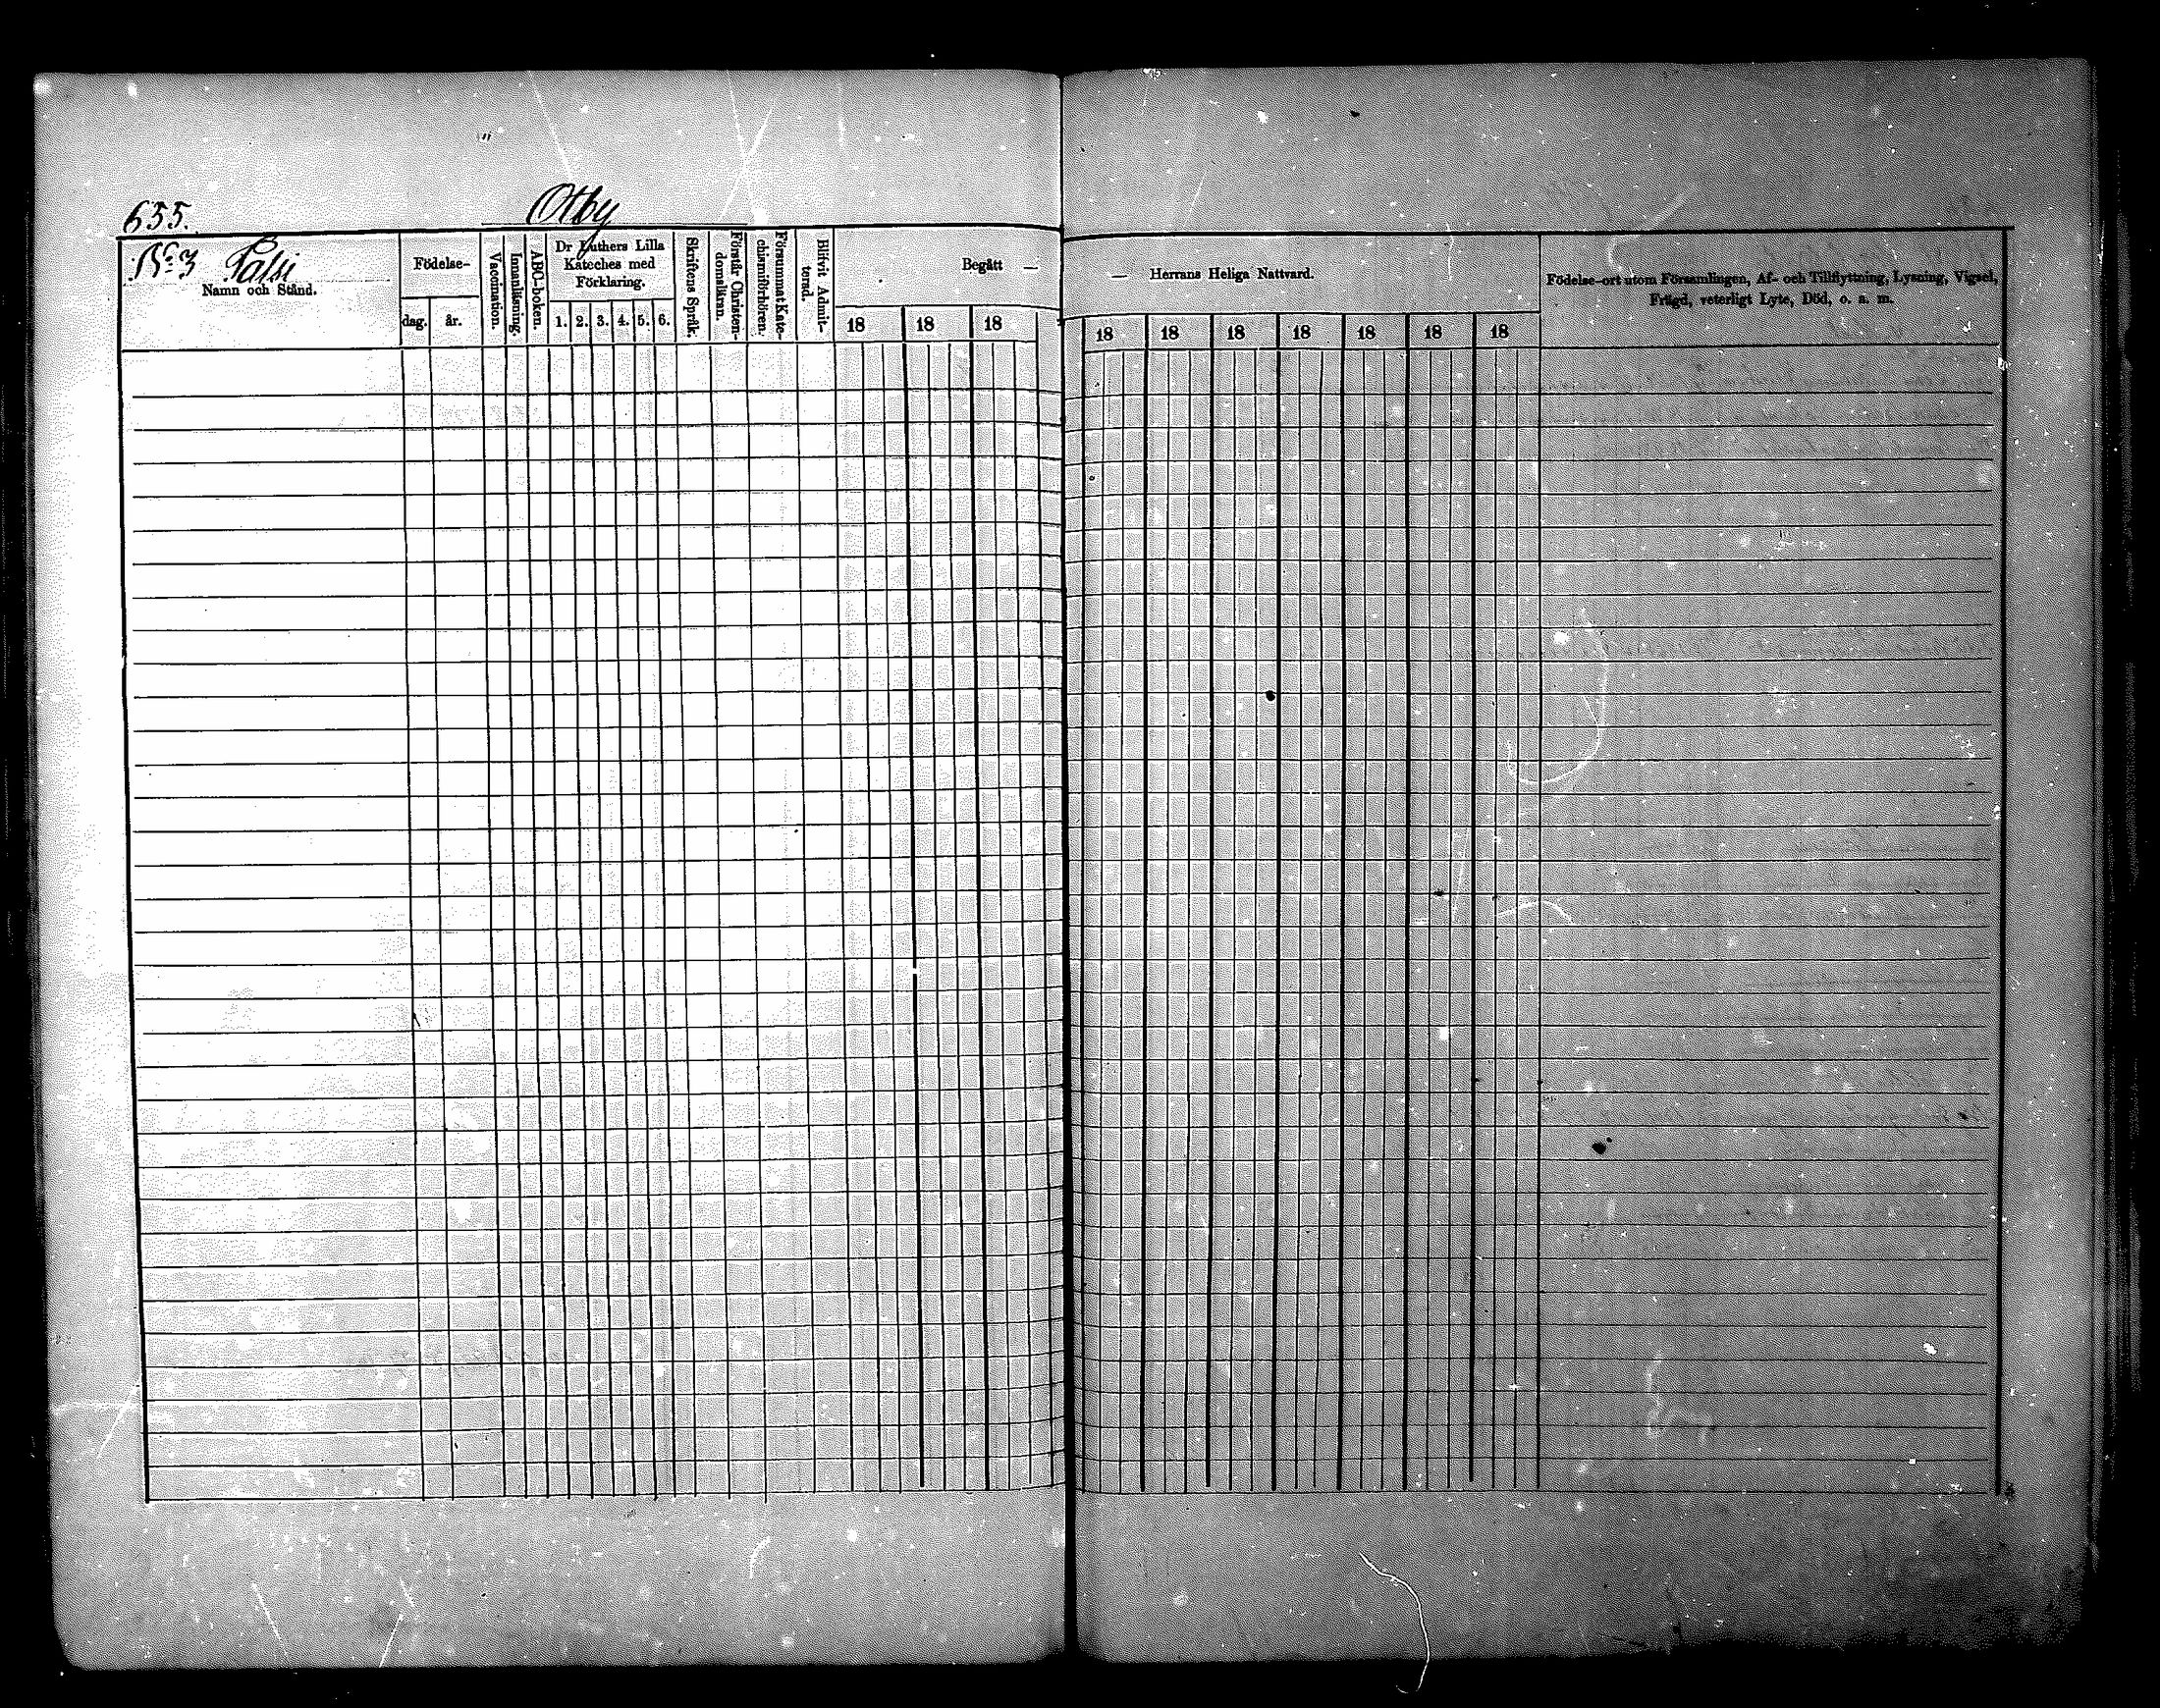 655.
Otby
No 3 Palsi
Namn och Stånd.
Födelse-
dag.
år.
Vaccination.
Innanläsning.
ABC-boken.
Dr Luthers Lilla
Kateches med
Förklaring.
1. 2. 3. 4. 5. 6.
Skriftens Språk.
Förstår Christen-
domsläran.
Försummat Kate-
chismiförhören.
Blifvit Admit-
terad.
Begått —
18 18 18
— Herrans Heliga Nattvard.
18 18 18 18 18 18 18
Födelse-ort utom Församlingen, Af- och Tillflyttning, Lysning, Vigsel,
Frägd, veterligt Lyte, Död, o. s. m.